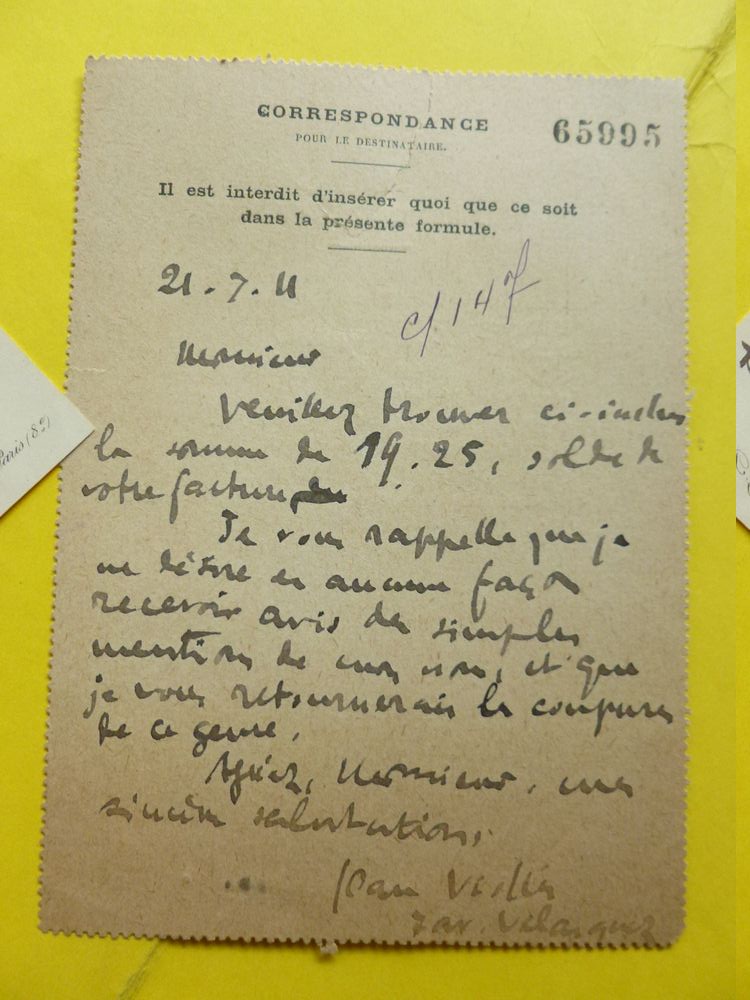 CORRESPONDANCE
65995
POUR LE DESTINATAIRE.
Il est interdit d'insérer quoi que ce soit
dans la présente formule.
21.7.11
c/ 147
Monsieur
Veuillez trouver ci-inclus
la somme de 19.25, solde de
votre facture
Je vous rappelle que je
ne désire en aucune façon
recevoir avis des simples
mentions de mon nom, et que
je vous retournerais les coupures
de ce genre.
Agréez, Monsieur, mes
sincères salutations.
7 av. Velasquez
Paris (8e)